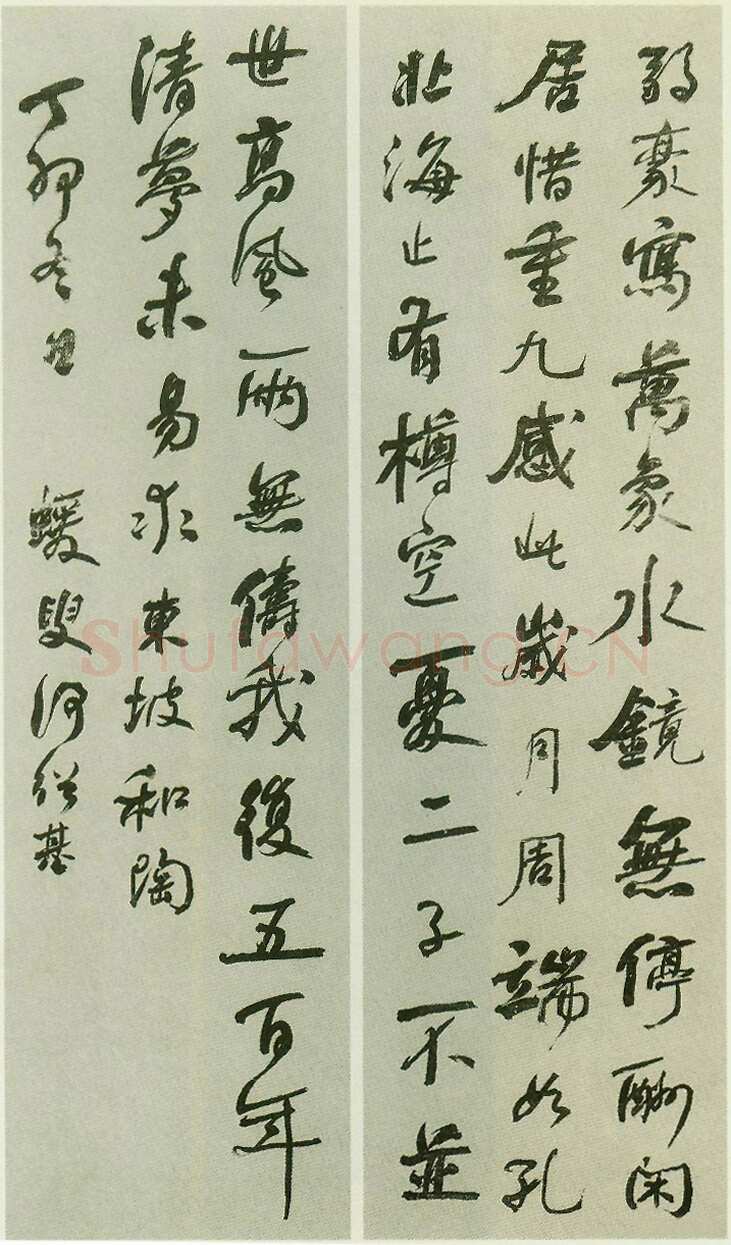 弱豪寫萬象水鏡無停酬閑
居惜重九感此歲月周端如孔
北海止有樽空憂二子不並
世高風兩無儔我復五百年
清夢未易求東坡和陶
丁卯冬日 蝯叟何紹基
Shufawang.CN